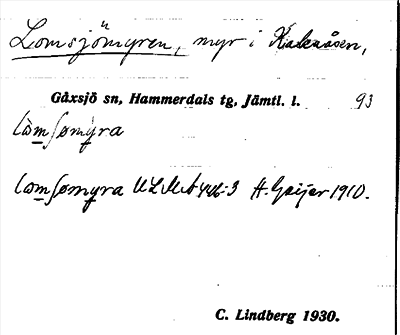 Lomsjömyren, myr i Raknåsen,
Gåxsjö sn, Hammerdals tg, Jämtl. l. 93
lòmʃømyra
lòmʃømyra ULMA 446:3 H. Geijer 1910.
C. Lindberg 1930.